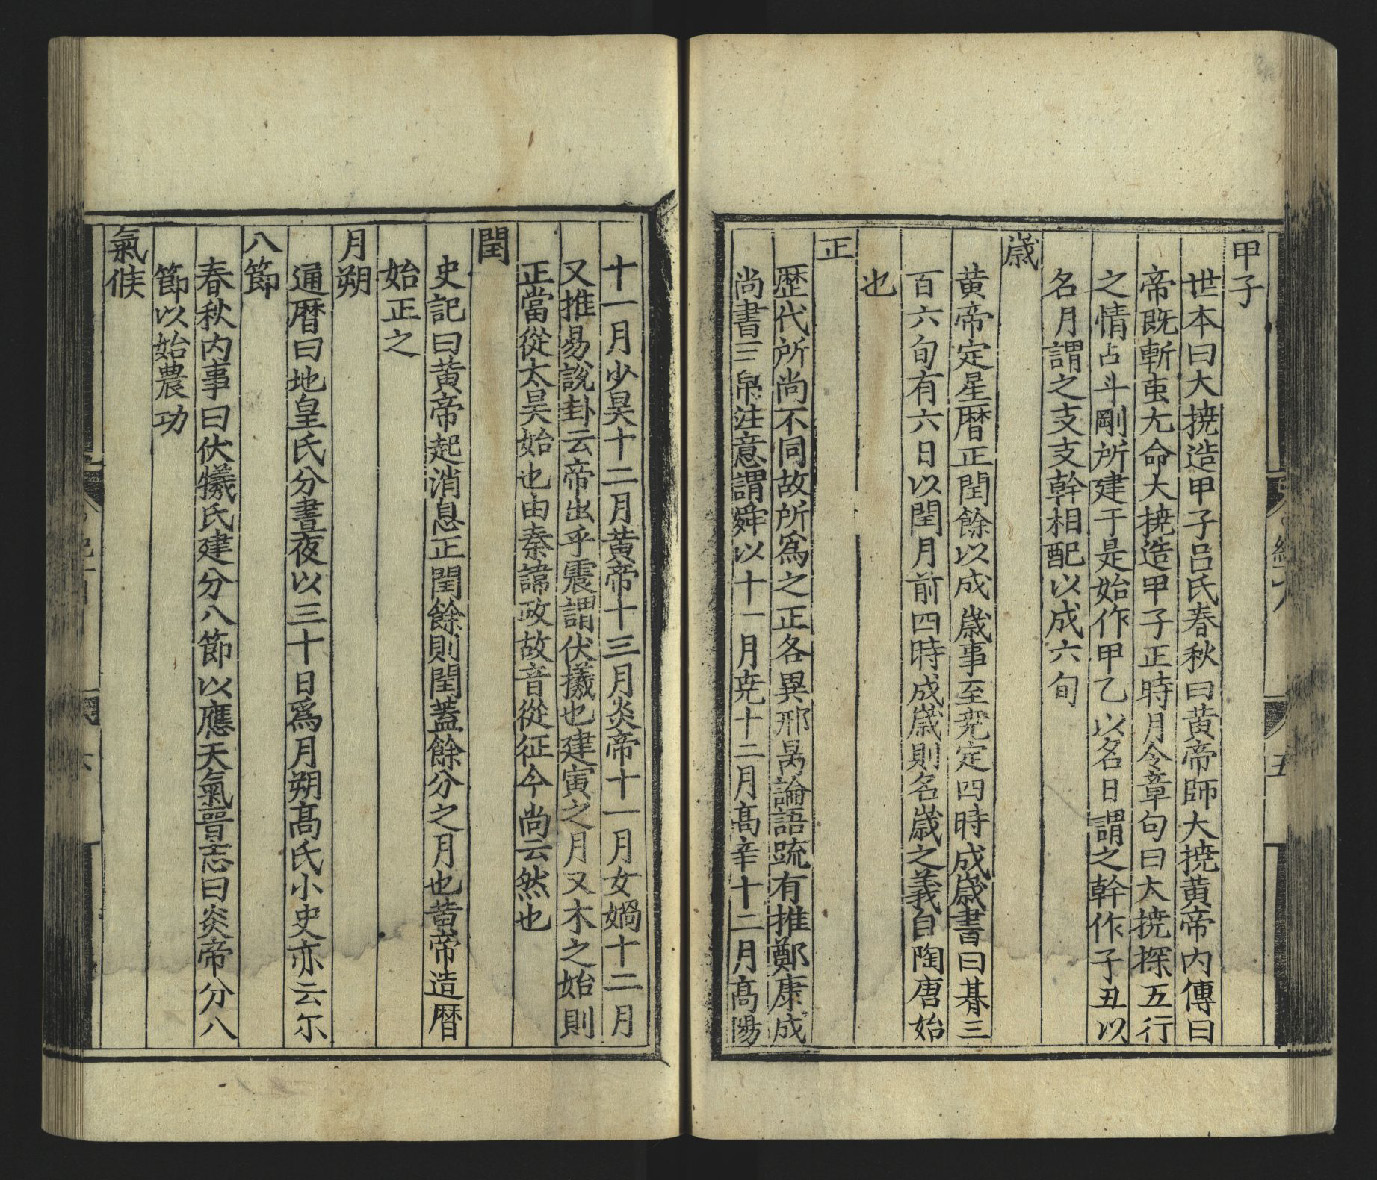 甲子
世本曰大撓造甲子呂氏春秋曰黃帝師大撓黃帝內傳曰
帝既斬蚩尤命大撓造甲子正時月令章句曰大撓探五行
之情占斗剛所建于是始作甲乙以名日謂之幹作子丑以
名月謂之支支幹相配以成六旬
歲
黃帝定星曆正閏餘以成歲事至堯定四時成歲書曰朞三
百六旬有六日以閏月前四時成歲則名歲之義自陶唐始
也
正
歷代所尚不同故所爲之正各異邢昺論語疏有推鄭康成
尚書三帛注意謂舜以十一月堯十二月高辛十二月高陽
十一月少昊十二月黃帝十三月炎帝十一月女媧十二月
又推易說卦云帝出乎震謂伏羲也建寅之月又木之始則
正當從太昊始也由秦諱政故音從征今尚云然也
閏
史記曰黃帝起消息正閏餘則閏蓋餘分之月也黃帝造曆
始正之
月朔
通曆曰地皇氏分晝夜以三十日爲月朔高氏小史亦云尔
八節
春秋內事曰伏犧氏建分八節以應天氣晉志曰炎帝分八
節以始農功
氣候